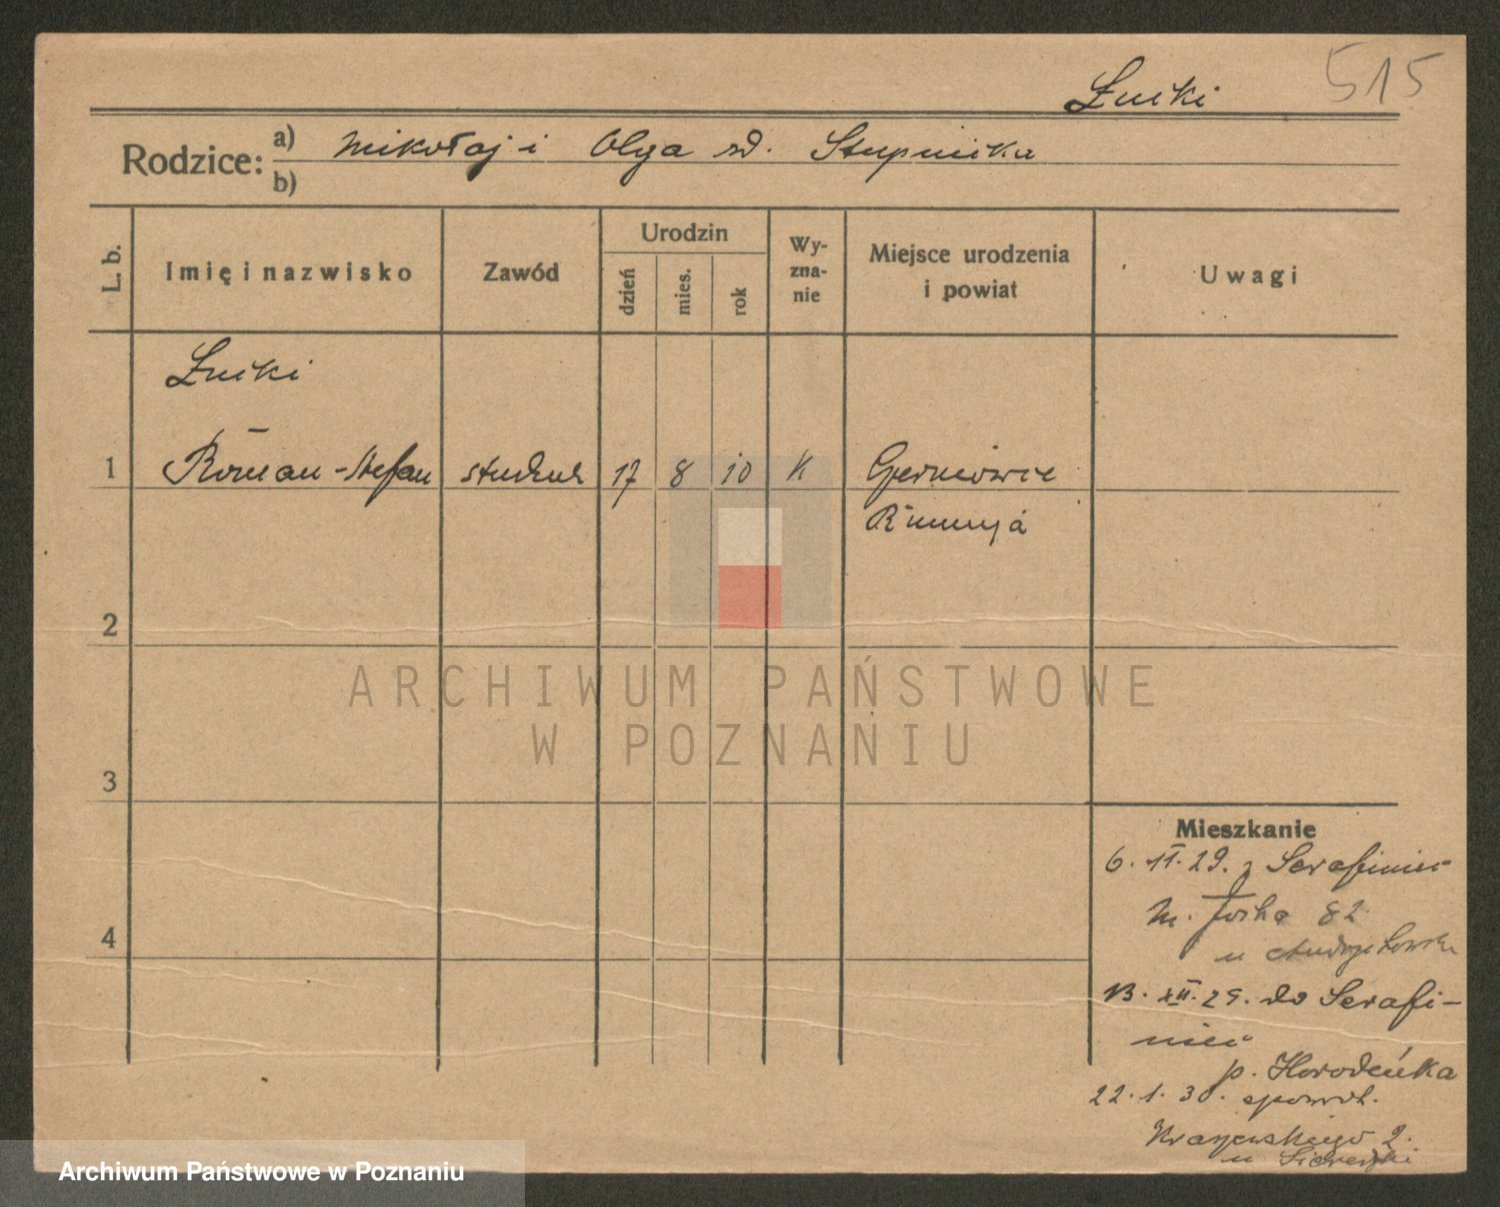 515
Łucki
Rodzice: a) Mikołaj i Olga zd. Stupnicka
b)
L. b.
Imię i nazwisko
Zawód
Urodzin
dzień
mies.
rok
Wy-
zna-
nie
Miejsce urodzenia
i powiat
Uwagi
Łucki
1 Roman-Stefan student 17 8 10 K Czerniowce
Rumunja
2
3
4
ARCHIWUM PAŃSTWOWE
W POZNANIU
Mieszkanie
6. 11. 29. z Serafiniec
M. Focha 82
u
13. XII. 29. do Serafi-
niec
p. Horodeńka
22. 1. 30. spowrot.
Kraszewskiego 2.
u
Archiwum Państwowe w Poznaniu